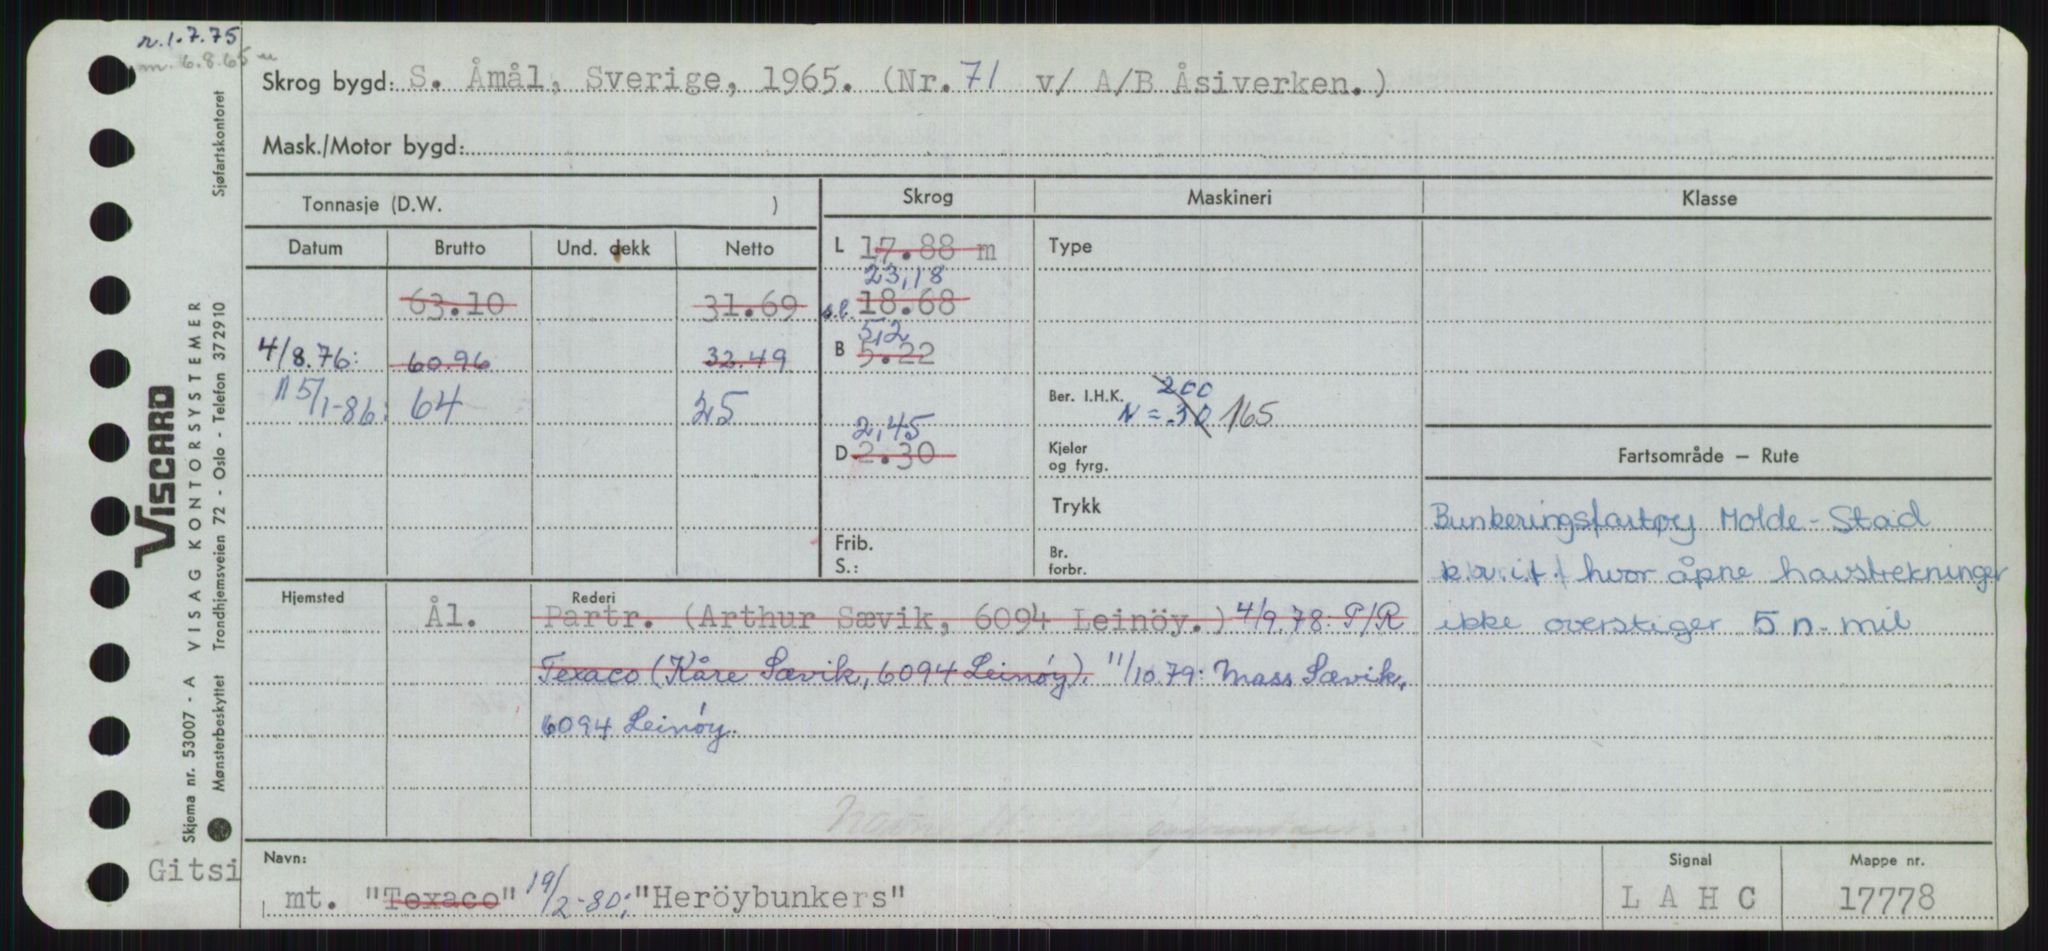 r. 1.7.75
m. 6.8.65
Skrog bygd: S. Åmål, Sverige, 1965. (Nr. 71 v/ A/B Åsiverken.)
Mask./Motor bygd:
Tonnasje (D.W. )
Skrog
Maskineri
Klasse
Datum
Brutto
Und. dekk
Netto
L 17.88 m
Type
23,18
63.10
31.69
s.l. 18.68
5,2
4/8.76: 60.96
32.49
B 5.22
15/1-86: 64
25
Ber. I.H.K. 200
N = 30 165
2,45
D 2.30
Kjeler
og fyrg.
Fartsområde – Rute
Trykk
Bunkeringsfartøy Molde-Stad
Frib.
S.:
Br.
forbr.
hvor åpne havstrekninger
ikke overstiger 5 n-mil
Hjemsted
Rederi
Ål.
Partr. (Arthur Sævik, 6094 Leinöy.) 4/9.78: P/R
Texaco (Kåre Sævik, 6094 Leinóy). 11/10.79: Mass Sævik,
6094 Leinóy.
Navn:
Signal
Mappe nr.
Gitsi
mt. "Texaco" 19/2-80; "Heröybunkers"
L A H C
17778
Viscard
VISAG KONTORSYSTEMER
Skjema nr. 53007 - A
Mønsterbeskyttet Trondhjemsveien 72 - Oslo - Telefon 372910
Sjøfartskontoret